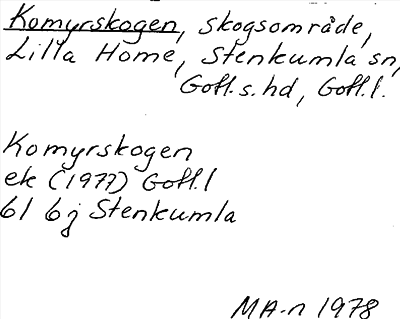 Komyrskogen, skogsområde,
Lilla Home, Stenkumla sn,
Gotl. s. hd, Gotl. l.
Komyrskogen
ek (1977) Gotl. l
61 6j Stenkumla
MA-n 1978